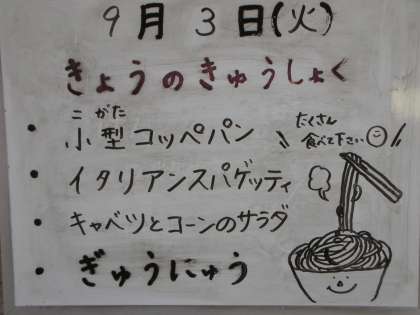 9月3日(火)
きょうのきゅうしょく
こ がた
・小型コッペパン
たくさん
食べて下さい
・イタリアンスパゲッティ
・キャベツとコーンのサラダ
・ぎゅうにゅう